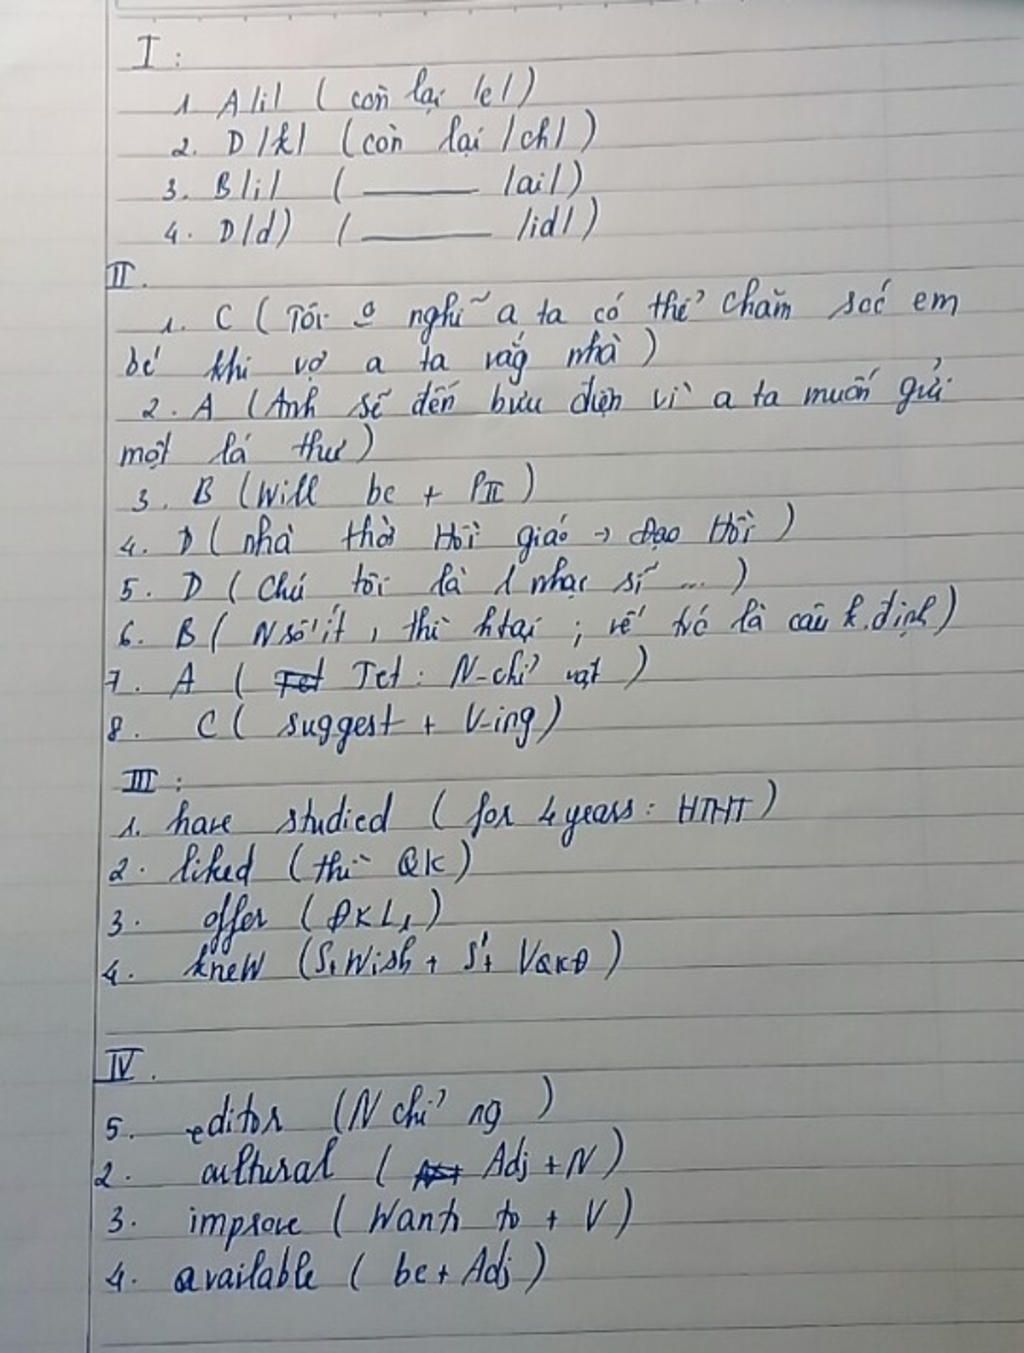 I :
1. A /i/ ( còn lại /e/ )
2. D /k/ ( còn lại /ch/ )
3. B /i/ ( ——— /ai/ )
4. D /d/ ( ——— /id/ )
II.
1. C ( Tôi o nghĩ a ta có thể chăm sóc em
bé khi vợ a ta vắng nhà )
2. A ( Anh sẽ đến bưu điện vì a ta muốn gửi
một lá thư )
3. B ( Will be + PII )
4. D ( nhà thờ Hồi giáo → Đạo Hồi )
5. D ( Chú tôi là 1 nhạc sĩ ... )
6. B ( N số ít , thì htại ; vế trc là câu k.định )
7. A ( Tet : N-chỉ vật )
8. C ( suggest + V-ing )
III :
1. have studied ( for 4 years : HTHT )
2. liked ( thì QK )
3. offer ( ĐKL1 )
4. knew ( S1 wish + S2 + VQKĐ )
IV.
5. editor ( N chỉ ng )
2. cultural ( Adj + N )
3. improve ( Want to + V )
4. available ( be + Adj )